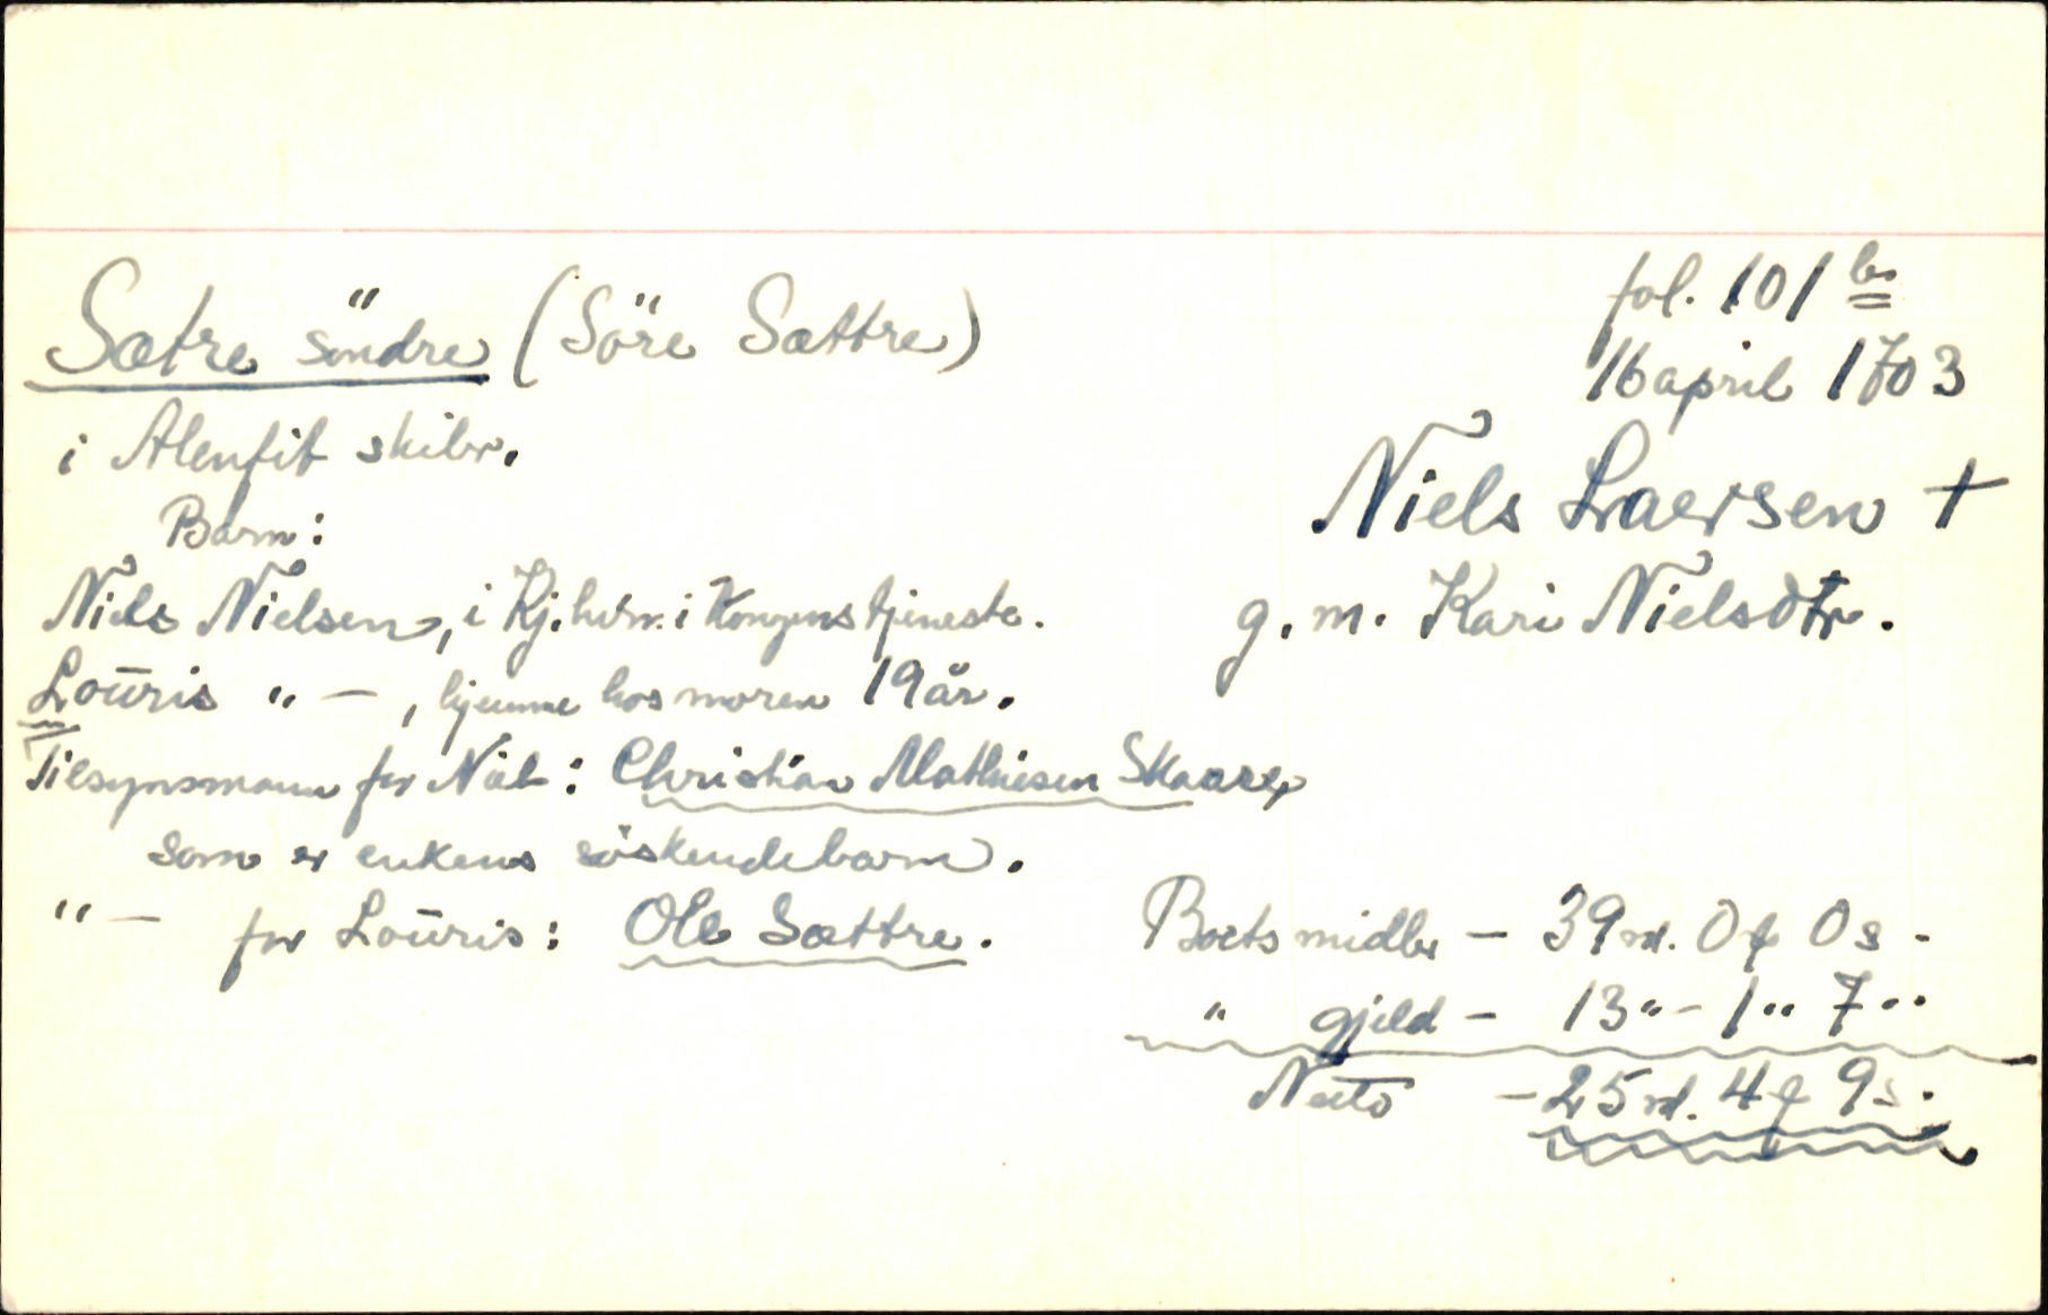 fol. 101 b
16 april 1703
Sætre söndre (Söre Sættre)
i Alenfit skibr.
Niels Laersen †
Barn:
g. m. Kari Nielsdtr.
Niels Nielsen, i Kj.hvn. i Kongens tjeneste.
Loūris " — , hjemme hos moren 19 år.
Tilsynsmann for Niels: Christian Mathiesen Skaarex
som er enkens söskendebarn.
" — for Loūris: Ole Sættre.
Boets midler – 39 rd. 0 f 0 s.
" gjeld – 13 " – 1 " 7 "
Netto – 25 rd. 4 f 9 s.